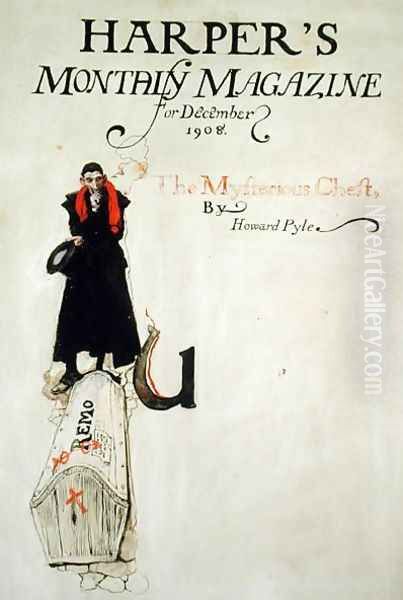 HARPER'S
MONTHLY MAGAZINE
for December
1908.
The Mysterious Chest,
By
Howard Pyle
U
REMO
NiceArtGallery.com